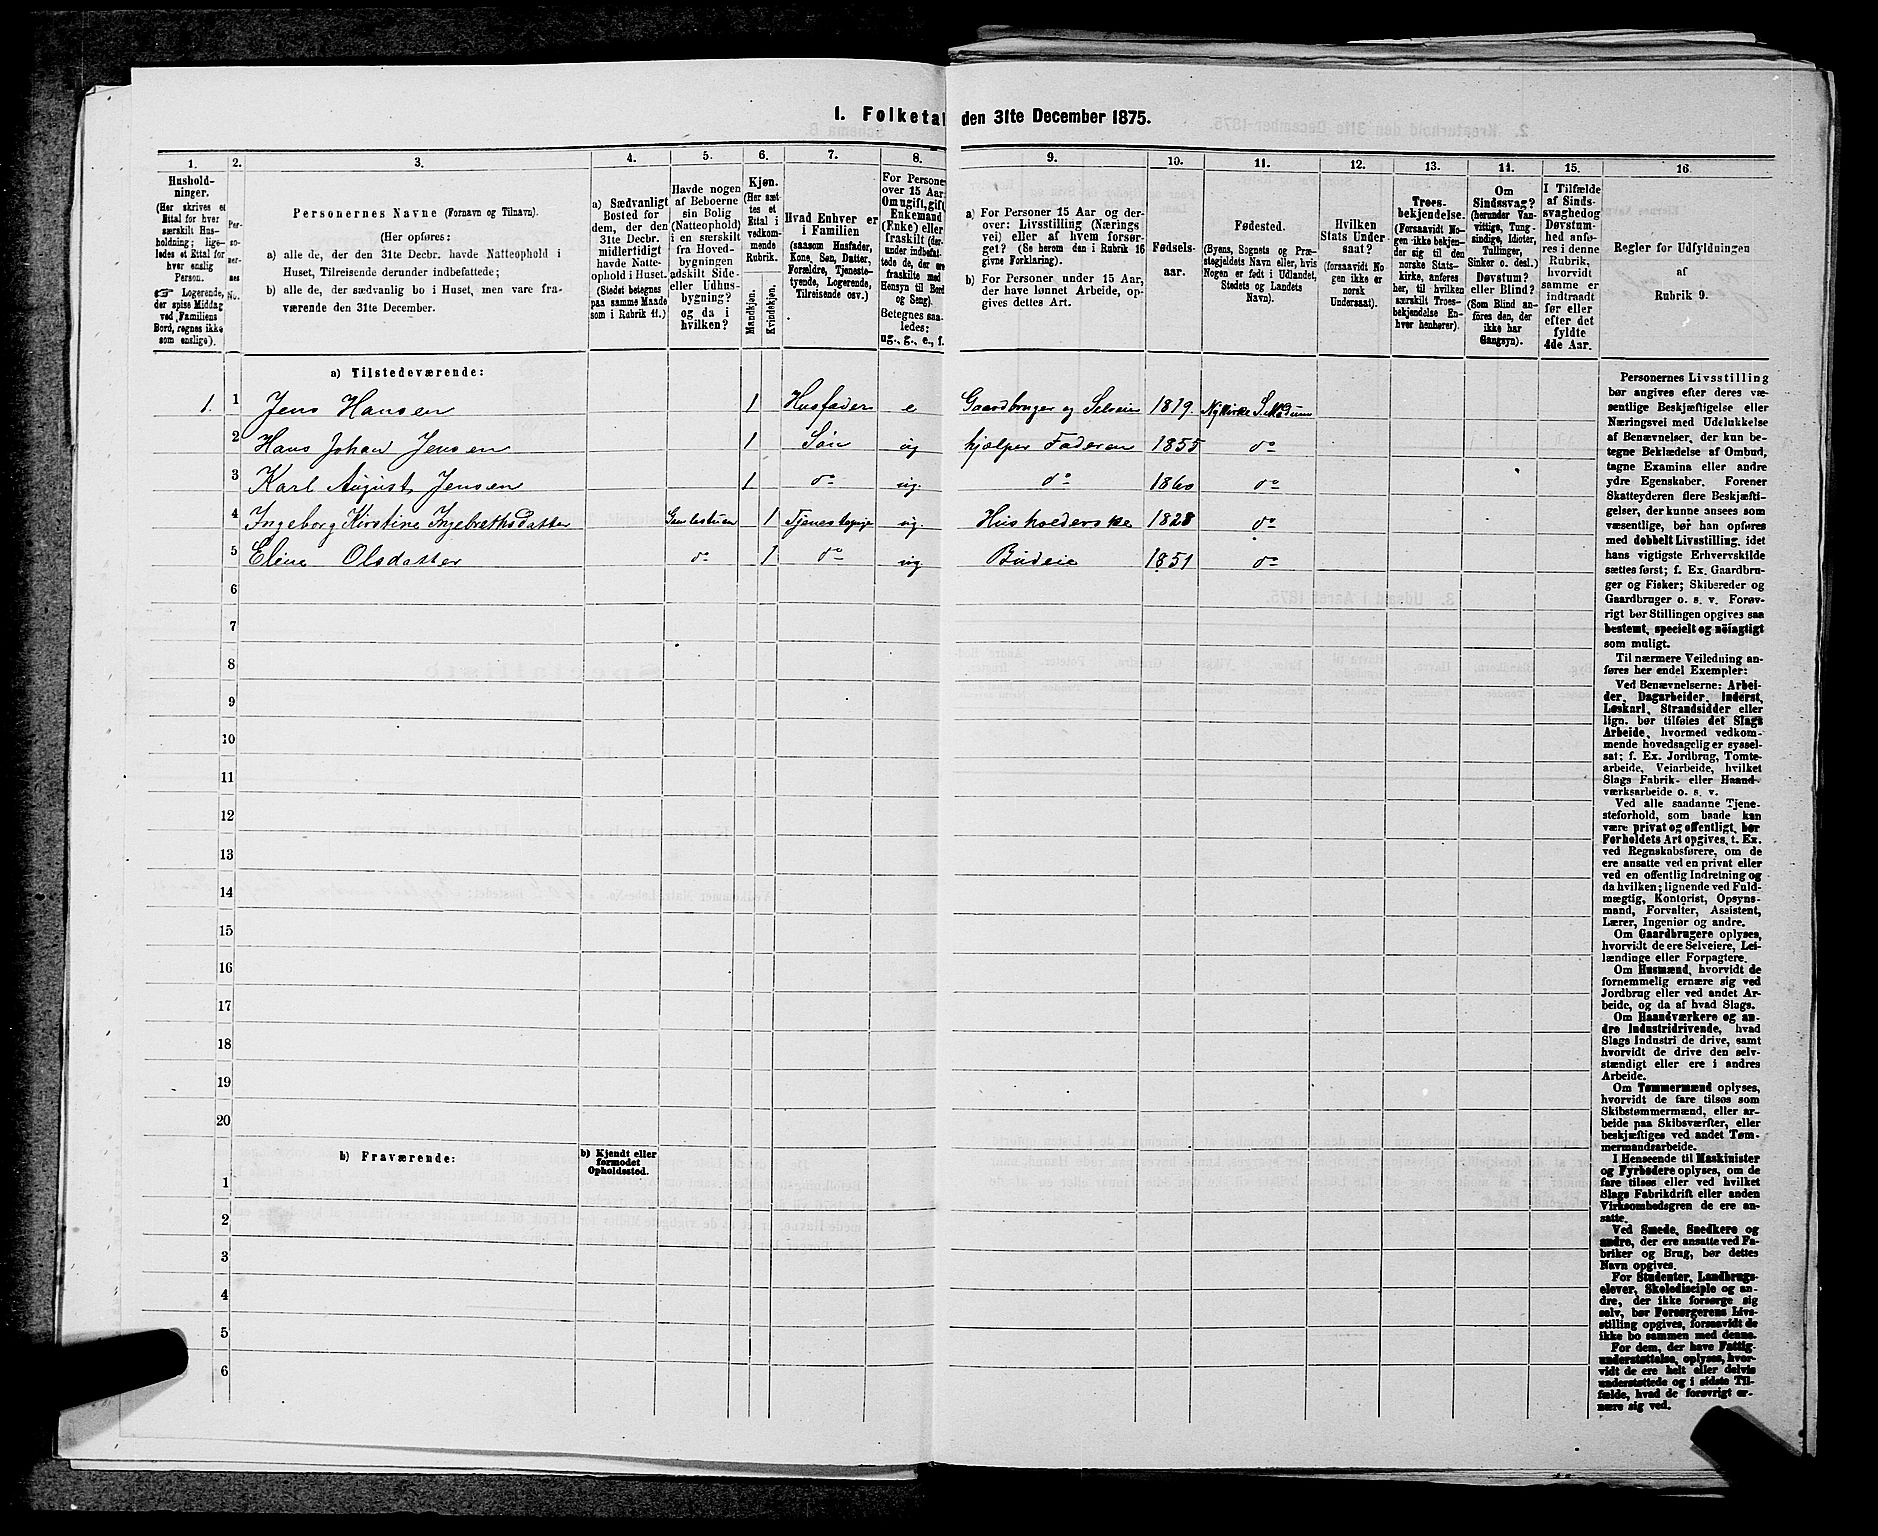 1. Folketal den 31te December 1875.
1. 2. 3. 4. 5. 6. 7. 8. 9. 10. 11. 12. 13. 14. 15. 16
Hushold-
ninger.
(Her skrives et
Ettal for hver
særskilt Hus-
holdning; lige-
ledes et Ettal for
hver enslig
Person.
☞ Logerende,
der spise Middag
ved Familiens
Bord, regnes ikke
som enslige).
Per-
so-
ner-
nes
No.
Personernes Navne (Fornavn og Tilnavn).
(Her opføres:
a) alle de, der den 31te Decbr. havde Natteophold i
Huset, Tilreisende derunder indbefattede;
b) alle de, der sædvanlig bo i Huset, men vare fra-
værende den 31te December.
a) Sædvanligt
Bosted for
dem, der den
31te Decbr.
midlertidigt
havde Natte-
ophold i Huset.
(Stedet betegnes
paa samme Maade
som i Rubrik 11.)
Havde nogen
af Beboerne
sin Bolig
(Natteophold)
i en særskilt
fra Hoved-
bygningen
adskilt Side-
eller Udhus-
bygning?
og da i
hvilken?
Kjøn.
(Her sæt-
tes et
Ettal i
vedkom-
mende
Rubrik.
Mandkjøn.
Kvindekjøn.
Hvad Enhver er
i Familien
(saasom Husfader,
Kone, Søn, Datter,
Forældre, Tjeneste-
tyende, Logerende,
Tilreisende osv.)
For Personer
over 15 Aar:
Om ugift, gift,
Enkemand
(Enke) eller
fraskilt (der-
under indbefat-
tede de, der ere
fraskilte med
Hensyn til Bord
og Seng).
Betegnes saa-
ledes:
ug., g., e., f.
a) For Personer 15 Aar og der-
over: Livsstilling (Nærings
vei) eller af hvem forsør-
get? (Se herom den i Rubrik 16
givne Forklaring).
b) For Personer under 15 Aar,
der have lønnet Arbeide, op-
gives dettes Art.
Fødsels-
aar.
Fødested.
(Byens, Sognets og Præ-
stegjeldets Navn eller, hvis
Nogen er født i Udlandet,
Stedets og Landets
Navn).
Hvilken
Stats Under-
saat?
(forsaavidt No
gen ikke er
norsk
Undersaat).
Troes-
bekjendelse.
(Forsaavidt No-
gen ikke bekjen-
der sig til den
norske Stats-
kirke, anføres
her, til hvilken
særskilt Troes-
bekjendelse En-
hver henhører).
Om
Sindssvag?
(herunder Van-
vittige, Tung-
sindige, Idioter,
Tullinger,
Sinker o. desl.)
Døvstum?
eller Blind?
(Som Blind an-
føres den, der
ikke har
Gangsyn).
I Tilfælde
af Sinds-
svaghed og
Døvstum-
hed anfø-
res i denne
Rubrik,
hvorvidt
samme er
indtraadt
før eller
efter det
fyldte
4de Aar.
Regler for Udfyldningen
af
Rubrik 9.
a) Tilstedeværende:
1. 1 Jens Hansen 1 Husfader e Gaardbruger og Selveier 1819 Nykirke S. Modum
2 Hans Johan Jensen 1 Søn ug hjælper Faderen 1855 do
3 Karl August Jensen 1 do ug. do 1860 do
4 Ingeborg Kirstine Ingebrethsdatter 1 Tjenestepige ug. Husholderske 1828 do
5 Eline Olsdatter do 1 do ug. Budeie 1851 do
6
7
8
9
10
11
12
13
14
15
16
17
18
19
20
b) Fraværende:
b) Kjendt eller
formodet
Opholdssted.
1
2
3
4
5
6
Personernes Livsstilling
bør angives efter deres væ-
sentlige Beskjæftigelse eller
Næringsvei med Udelukkelse
af Benævnelser, der kun be-
tegne Beklædelse af Ombud,
tagne Examina eller andre
ydre Egenskaber. Forener
Skatteyderen flere Beskjæfti-
gelser, der kunne ansees som
væsentlige, bør han opføres
med dobbelt Livsstilling, idet
hans vigtigste Erhvervskilde
sættes først; f. Ex. Gaardbru-
ger og Fisker; Skibsreder og
Gaardbruger o. s. v. Forøv-
rigt bør Stillingen opgives saa
bestemt, specielt og nöiagtigt
som muligt.
Til nærmere Veiledning an-
føres her endel Exempler:
Ved Benævnelserne: Arbei-
der, Dagarbeider, Inderst,
Løskarl, Strandsidder eller
lign. bør tilføies det Slags
Arbeide, hvormed vedkom-
mende hovedsagelig er syssel-
sat; f. Ex. Jordbrug, Tomte-
arbeide, Veiarbeide, hvilket
Slags Fabrik- eller Haand-
værksarbeide o. s. v.
Ved alle saadanne Tjene-
steforhold, som baade kan
være privat og offentligt, bør
Forholdets Art opgives, t. Ex.
ved Regnskabsførere, om de
ere ansatte ved en privat eller
ved en offentlig Indretning og
da hvilken; lignende ved Fuld-
mægtig, Kontorist, Opsyns-
mand, Forvalter, Assistent,
Lærer, Ingeniør og andre.
Om Gaardbrugere oplyses,
hvorvidt de ere Selveiere, Lei-
lændinge eller Forpagtere.
Om Husmænd, hvorvidt de
fornemmelig ernære sig ved
Jordbrug eller ved andet Ar-
beide, og da af hvad Slags.
Om Haandværkere og an-
dre Industridrivende, hvad
Slags Industri de drive, samt
hvorvidt de drive den selv-
stændigt eller ere i andres
Arbeide.
Om Tømmermænd oplyses,
hvorvidt de fare tilsøs som
Skibstømmermænd, eller ar-
beide paa Skibsværfter, eller
beskjæftiges ved andet Tøm-
mermandsarbeide.
I Henseende til Maskinister
og Fyrbødere oplyses, om de
fare tilsøs eller ved hvilket
Slags Fabrikdrift eller anden
Virksomhedsgren de ere an-
satte.
Ved Smede, Snedkere og
andre, der ere ansatte ved Fa-
briker og Brug, bør dettes
Navn opgives.
For Studenter, Landbrugs-
elever, Skoledisciple og an-
dre, der ikke forsørge sig
selv, bør Forsørgerens Livs-
stilling opgives, forsaavidt de
ikke bo sammen med denne.
For dem, der have Fattig-
understøttelse, oplyses, hvor-
vidt de ere helt eller delvis
understøttede og i sidste Til-
fælde, hvad de forøvrigt er-
nære sig ved.